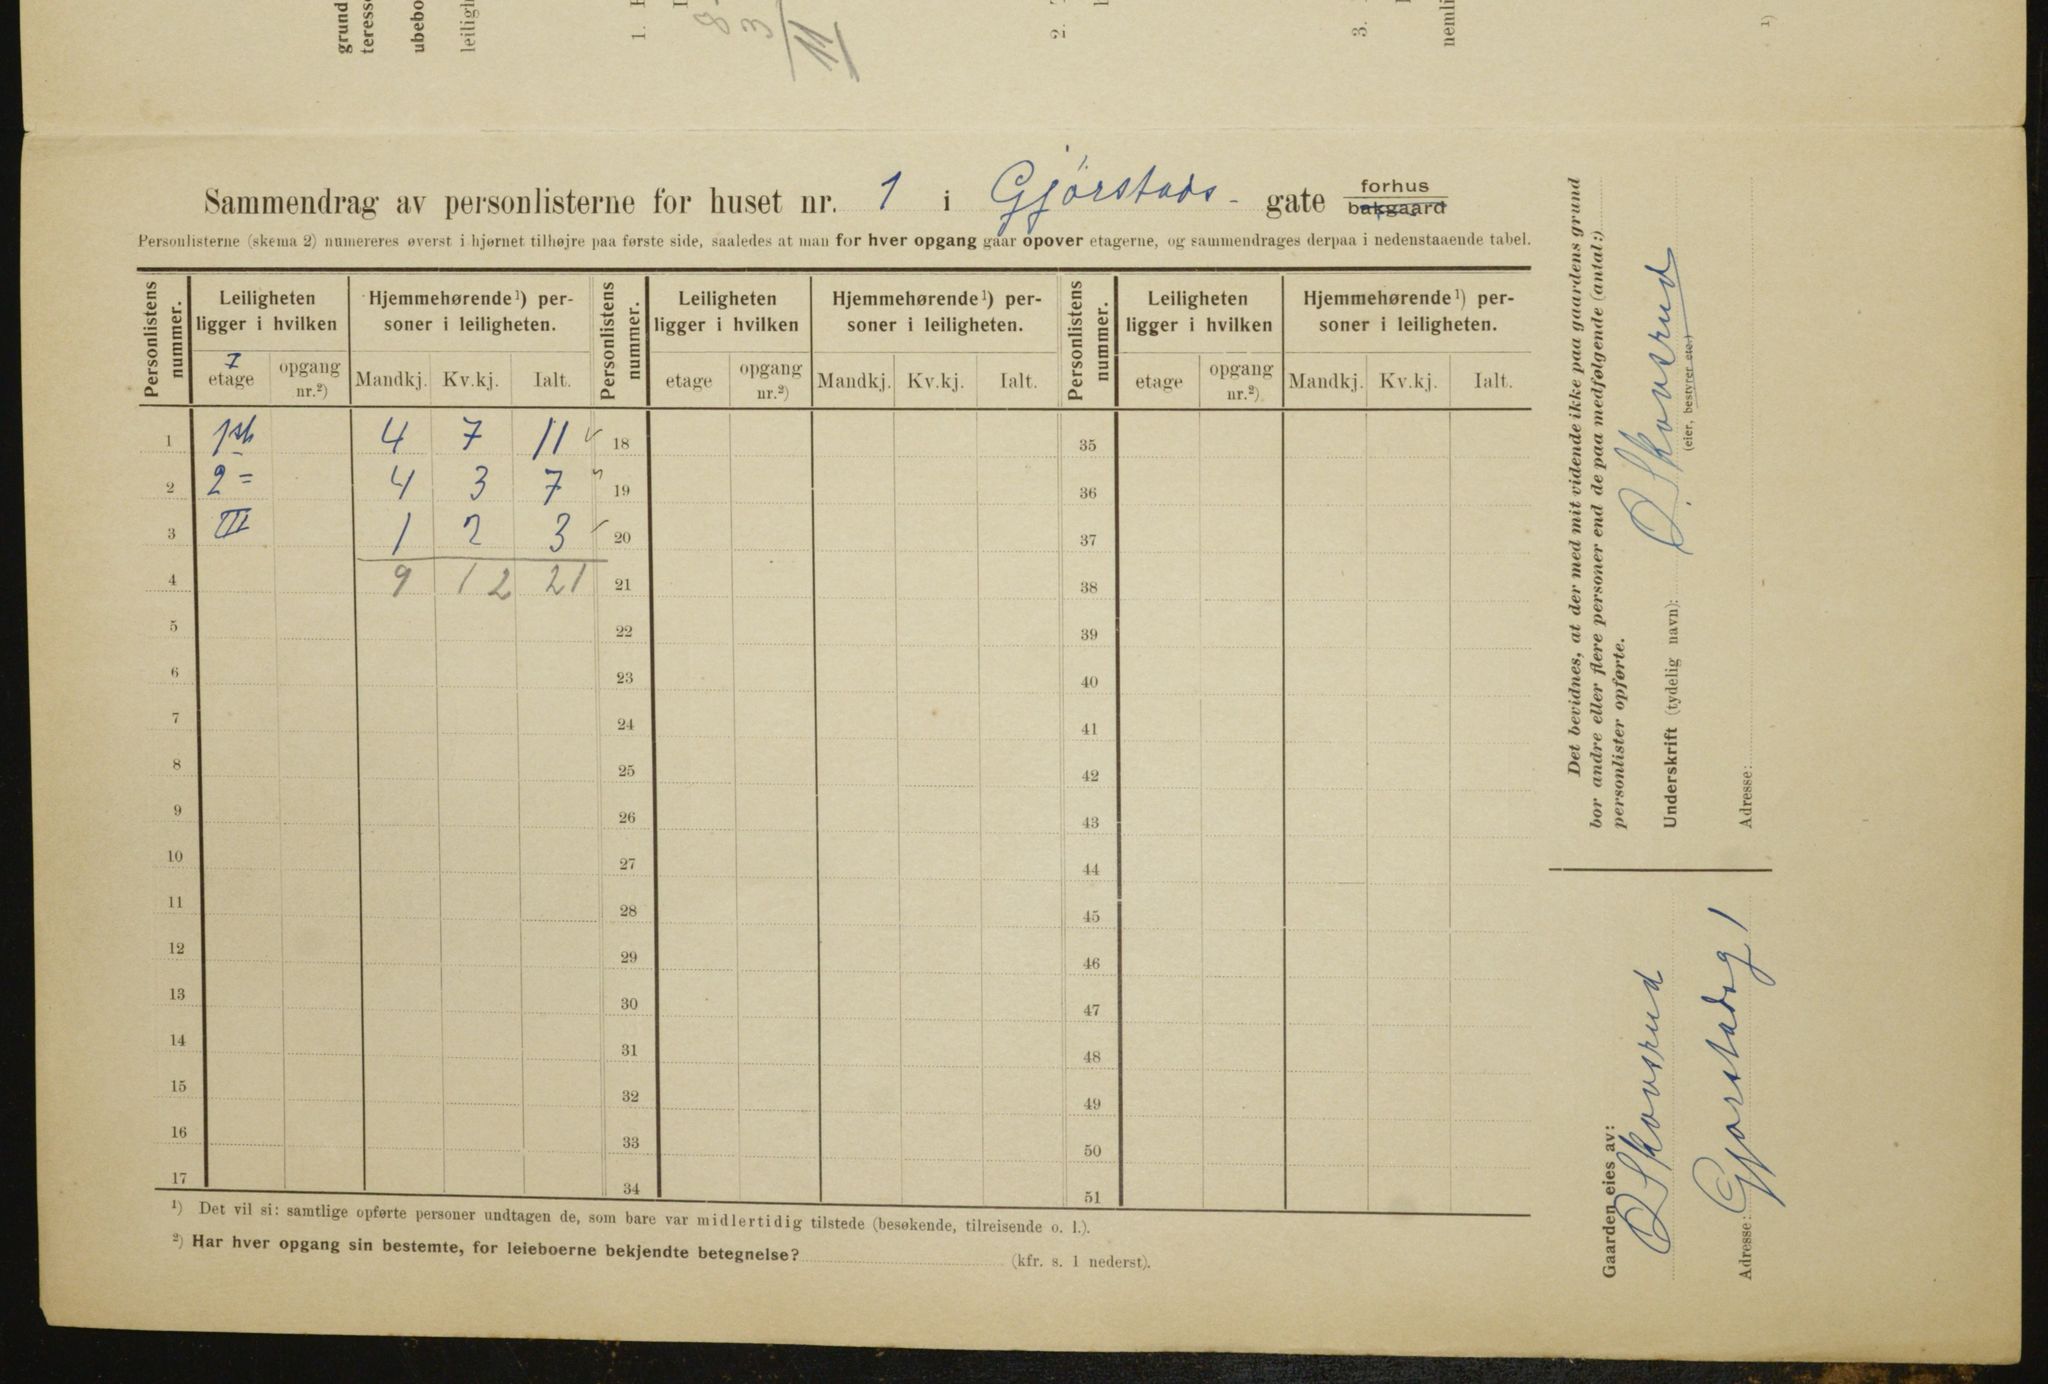 grund
teresse
ubebo
leiligh
1.
8
3
11
2.
3.
nemli
1)
Sammendrag av personlisterne for huset nr. 1 i Gjørstads- gate forhus bakgaard
Personlisterne (skema 2) numereres øverst i hjørnet tilhøjre paa første side, saaledes at man for hver opgang gaar opover etagerne, og sammendrages derpaa i nedenstaaende tabel.
Personlistens nummer. Leiligheten ligger i hvilken Hjemmehørende¹) personer i leiligheten. Personlistens nummer. Leiligheten ligger i hvilken Hjemmehørende¹) personer i leiligheten. Personlistens nummer. Leiligheten ligger i hvilken Hjemmehørende¹) personer i leiligheten.
7
etage opgang nr.²) Mandkj. Kv.kj. Ialt. etage opgang nr.²) Mandkj. Kv.kj. Ialt. etage opgang nr.²) Mandkj. Kv.kj. Ialt.
1 1st 4 7 11 18 35
2 2= 4 3 7 19 36
3 III 1 2 3 20 37
4 9 12 21 21 38
5 22 39
6 23 40
7 24 41
8 25 42
9 26 43
10 27 44
11 28 45
12 29 46
13 30 47
14 31 48
15 32 49
16 33 50
17 34 51
¹) Det vil si: samtlige opførte personer undtagen de, som bare var midlertidig tilstede (besøkende, tilreisende o. l.).
²) Har hver opgang sin bestemte, for leieboerne bekjendte betegnelse? (kfr. s. 1 nederst).
Det bevidnes, at der med mit vidende ikke paa gaardens grund
bor andre eller flere personer end de paa medfølgende (antal:)
personlister opførte.
Underskrift (tydelig navn): O. Skovsrud
(eier, bestyrer etc.)
Adresse:
Gaarden eies av:
O Skovsrud
Adresse: Gjørstadsg 1